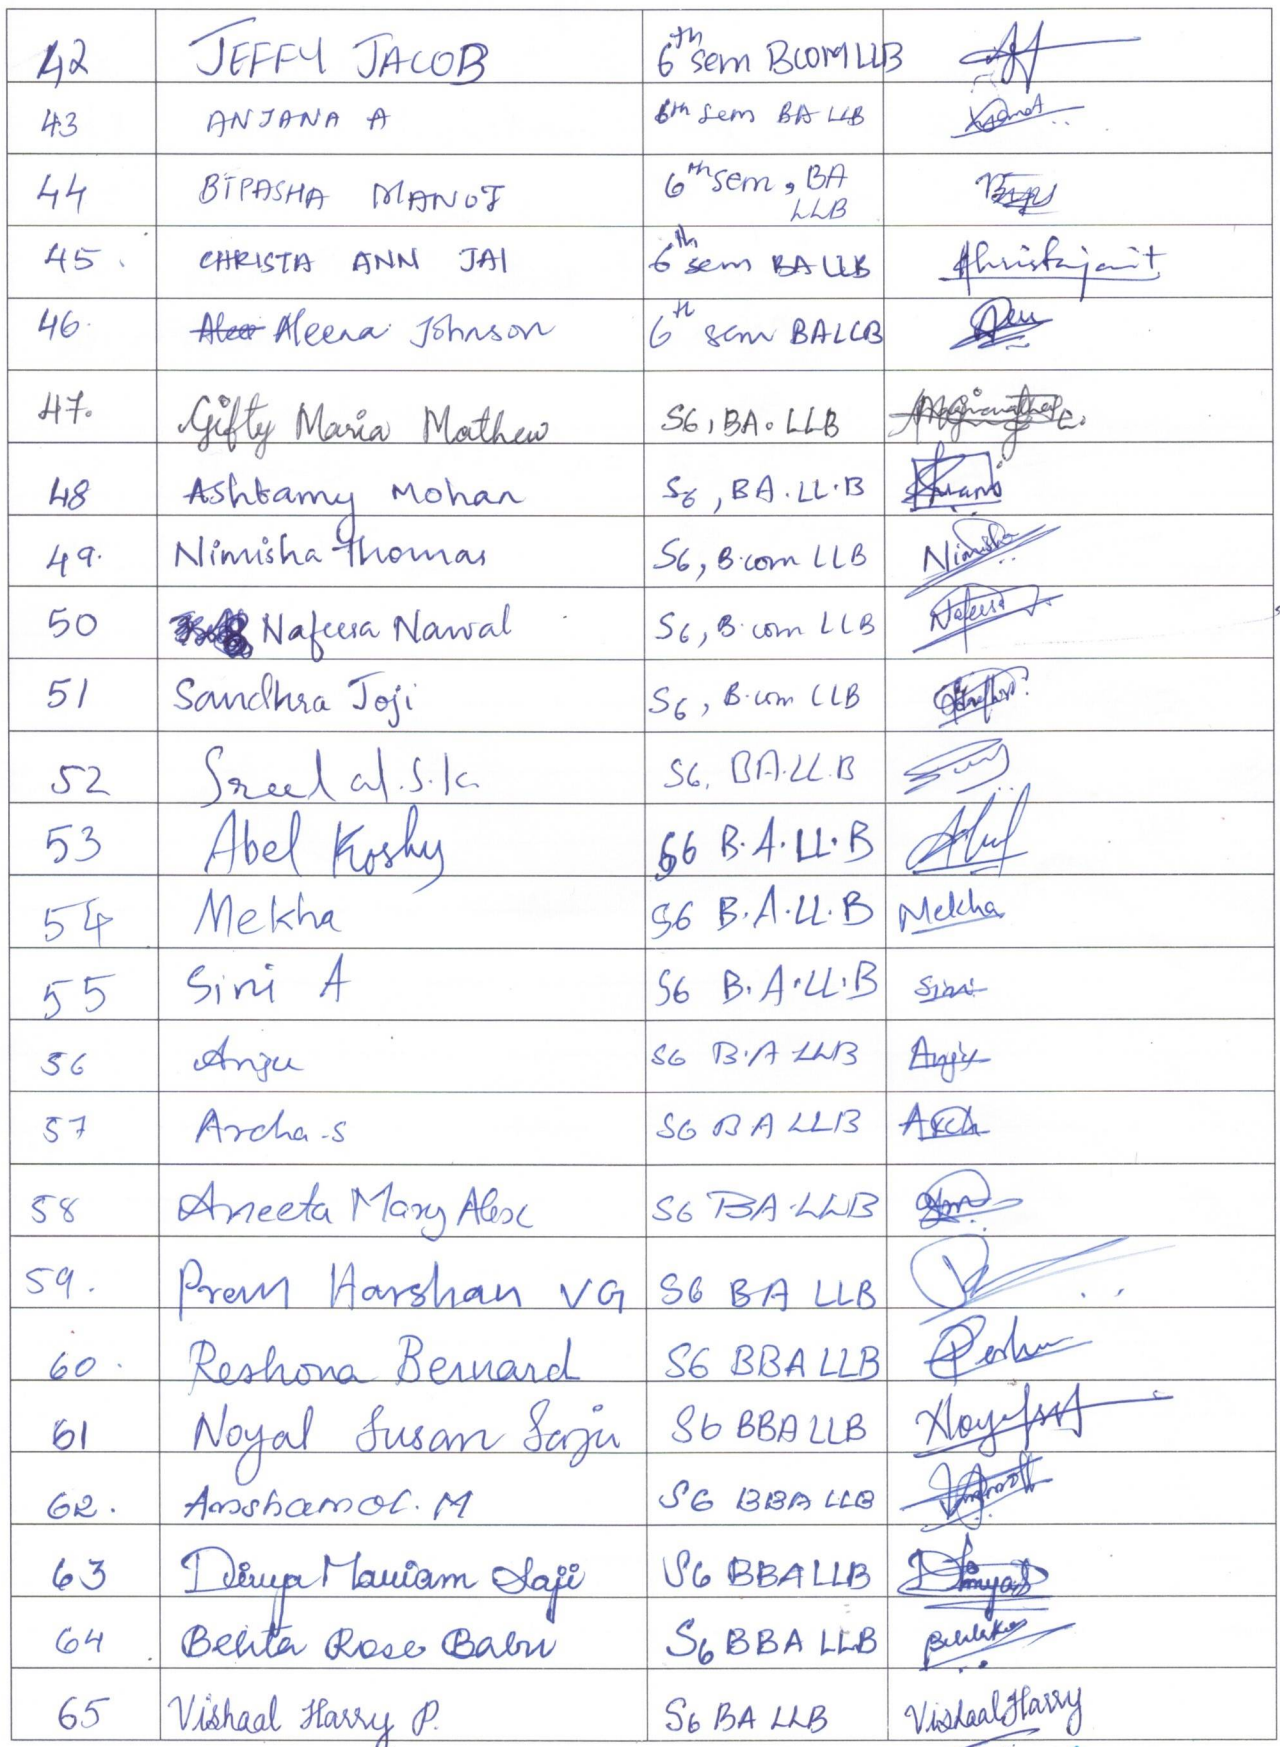 42 JEFFY JACOB 6th sem BCOM LLB
43 ANJANA A 6th sem BA LLB
44 BIPASHA MANOJ 6th sem, BA
LLB
45. CHRISTA ANN JAI 6th sem BA LLB
46. Aleena Johnson 6th sem BALLB
47. Gifty Maria Mathew S6, BA. LLB
48 Ashtamy Mohan S6, BA.LL.B
49. Nimisha Thomas S6, B.com LLB Nimisha
50 Nafeesa Nawal S6, B.com LLB Nafeesa
51 Sandhra Joji S6, B.com LLB
52 S.K. S6, BA.LL.B
53 Abel Koshy S6 B.A.LL.B Abel
54 Mekha S6 B.A.LL.B Mekha
55 Sini A S6 B.A.LL.B Sini
56 Anju S6 B.A LLB Anju
57 Archa.S S6 BA LLB Arch
58 Aneeta Mary Alex S6 BA.LLB
59. Prem Harshan VG S6 BA LLB
60. Reshona Bernard S6 BBA LLB
61 Noyal Susan Saju S6 BBA LLB
62. M S6 BBA LLB
63 Diya Mariam Saji S6 BBA LLB
64 Belita Rose Babu S6 BBA LLB
65 Vishaal Harry P. S6 BA LLB Vishaal Harry